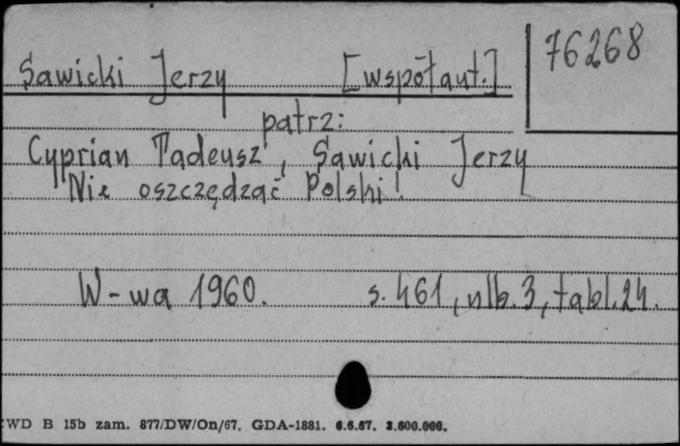 76268
Sawicki Jerzy [współaut.]
patrz:
Cyprian Tadeusz, Sawicki Jerzy
Nie oszczędzać Polski!
W-wa 1960. s. 461, nlb. 3, tabl. 24.
WD B 15b zam. 877/DW/On/67. GDA-1881. 6.6.67. 3.600.000.